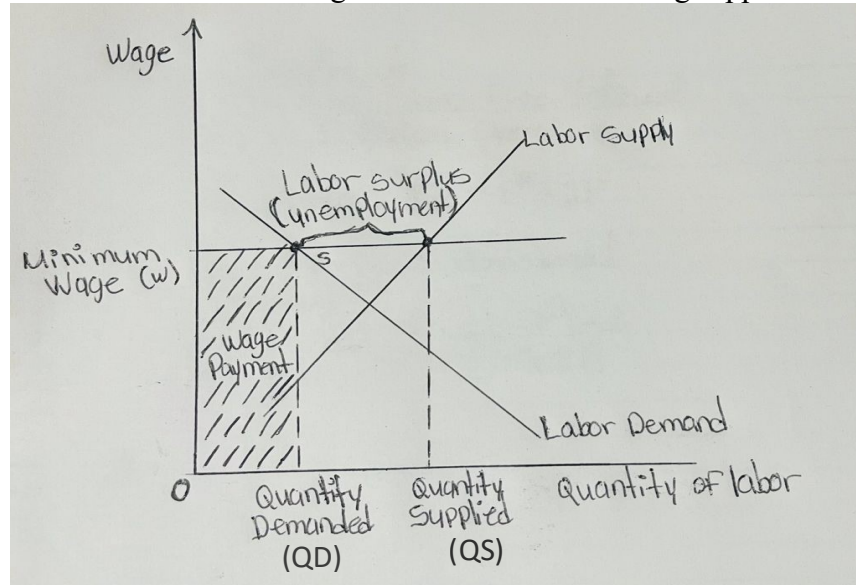 Wage
Labor Supply
Labor surplus
(unemployment)
Minimum
Wage (w)
S
Wage
Payment
Labor Demand
0
Quantity
Demanded
(QD)
Quantity
Supplied
(QS)
Quantity of labor